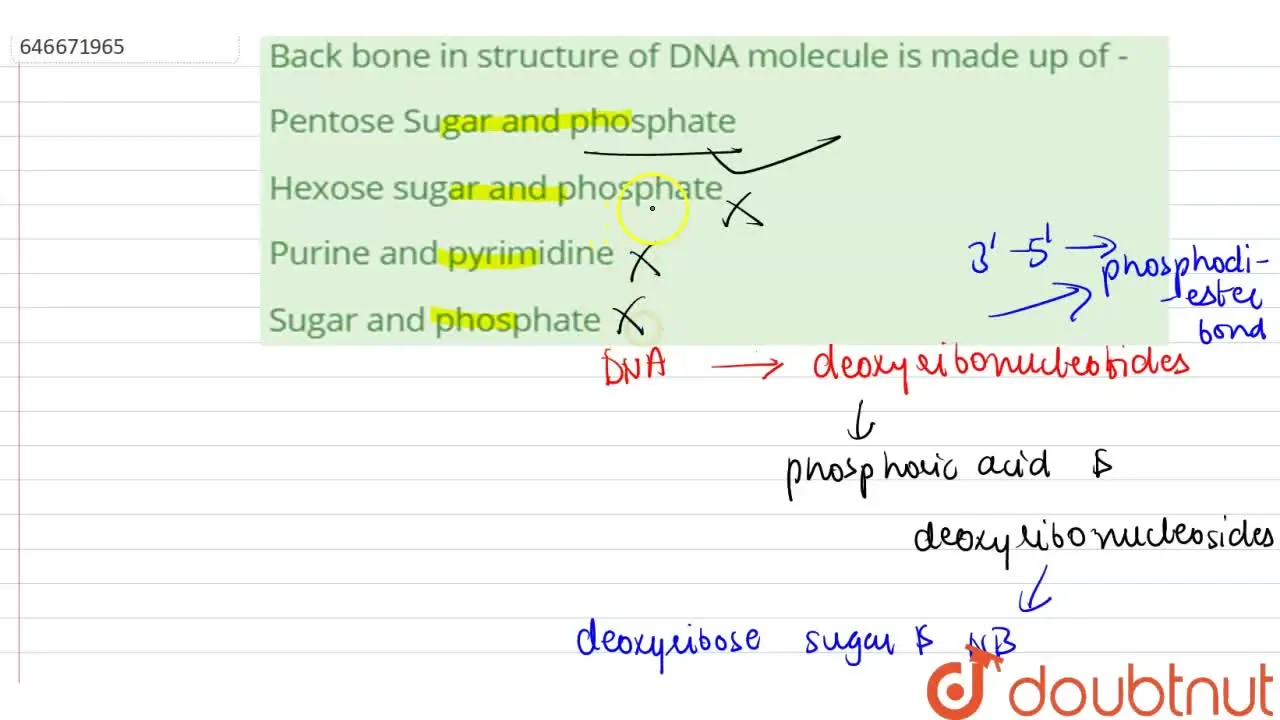 646671965
Back bone in structure of DNA molecule is made up of -
Pentose Sugar and phosphate
Hexose sugar and phosphate
Purine and pyrimidine
Sugar and phosphate
3' - 5' → phosphodi-
ester
bond
DNA → deoxyribonucleotides
phosphoric acid &
deoxyribonucleosides
deoxyribose sugar & NB
doubtnut